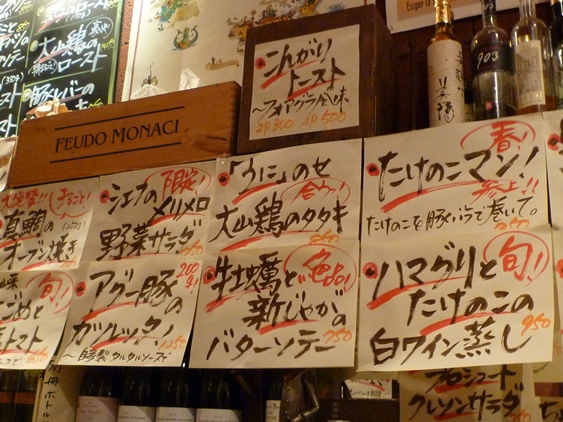 大山鶏の
ロースト
豚レバーの
FEUDO MONACI
こんがり
トースト
〜フォアグラ風味
2P 300 4P 500
903
まるごと!
真鯛の
オーブン焼き
シェフの
限定!
メリメロ
野菜サラダ
「うに」のせ
大山鶏のタタキ
春!
たけのこマン!
参上!!
たけのこを豚バラで巻いて。
旬!
トマト
アグー豚の
200g!
ガツレッタ!
〜自家製タルタルソースで
牡蠣と
絶品!
新じゃがの
バターソテー
750
ハマグリと
旬!
たけのこの
白ワイン蒸し
950
プロシュート
クレソンサラダ